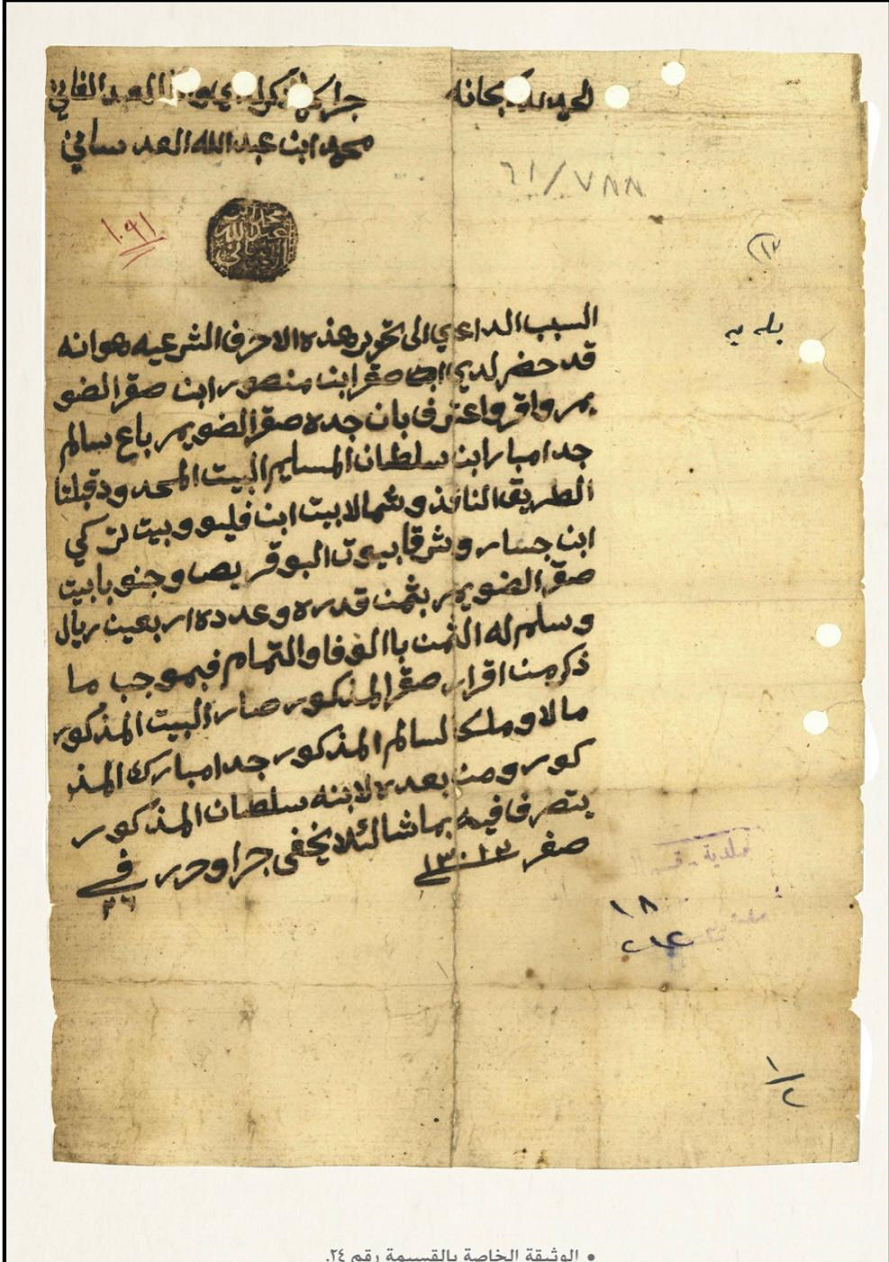 الحمد لله سبحانه
جرا كما ذكر لدي وانا العبد الفاني
محمد ابن عبدالله العدساني
٦١/٧٨٨
١٠٩١
محمد ابن عبدالله العدساني
بلديه
السبب الداعي الى تحرير هذه الاحرف الشرعيه هوانه
قد حضر لدي صقر ابن منصور ابن صقر الضو
يمر واقر واعترف بان جده صقر الضويمر باع سالم
جد امبارك ابن سلطان المسليم البيت المحدود قبلتا
الطريق النافذ وشمالا بيت ابن فليو وبيت تركي
ابن جسار وشرقا بيوت البوقريص وجنوبا بيت
صقر الضويمر بثمن قدره وعدده اربعين ريال
وسلم له الثمن باالوفا والتمام فبموجب ما
ذكر من اقرار صقر المذكور صار البيت المذكور
مالا وملكا لسالم المذكور جد امبارك المذ
كور ومن بعده لابنه سلطان المذكور
يتصرف فيه بما شا لئلا يخفى جرا وحرر في
٢٦
صفر ١٣٠١٣
بلدية
١٨
١/٢
• الوثيقة الخاصة بالقسيمة رقم ٢٤.